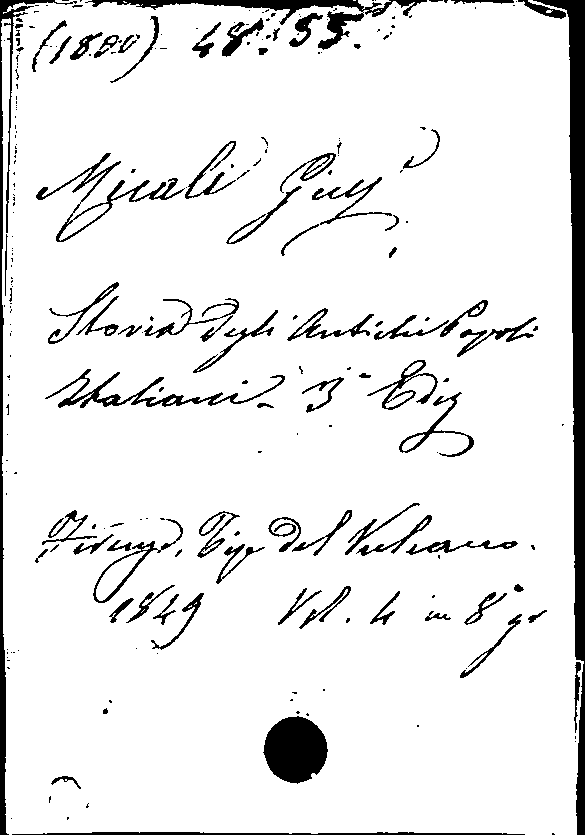 (1800) 48.'55.
Micali Giuse
Storia degli Antichi Popoli
Italiani - 3ª Ediz
Firenze, Tip. del Vulcano.
1849 Vol. 4 in 8° gr